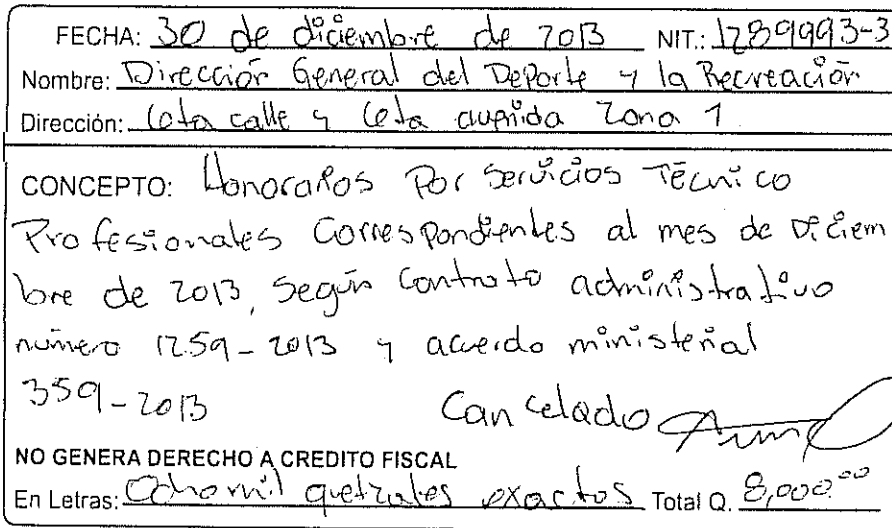 FECHA: 30 de diciembre de 2013 NIT.: 1289993-3
Nombre: Dirección General del Deporte y la Recreación
Dirección: 6ta calle y 6ta avenida Zona 1
CONCEPTO: Honorarios Por Servicios Técnico
Profesionales Correspondientes al mes de Diciem
bre de 2013, Según Contrato administrativo
número 1259-2013 y acuerdo ministerial
359-2013 Cancelado
NO GENERA DERECHO A CREDITO FISCAL
En Letras: Ocho mil quetzales exactos Total Q. 8,000.00